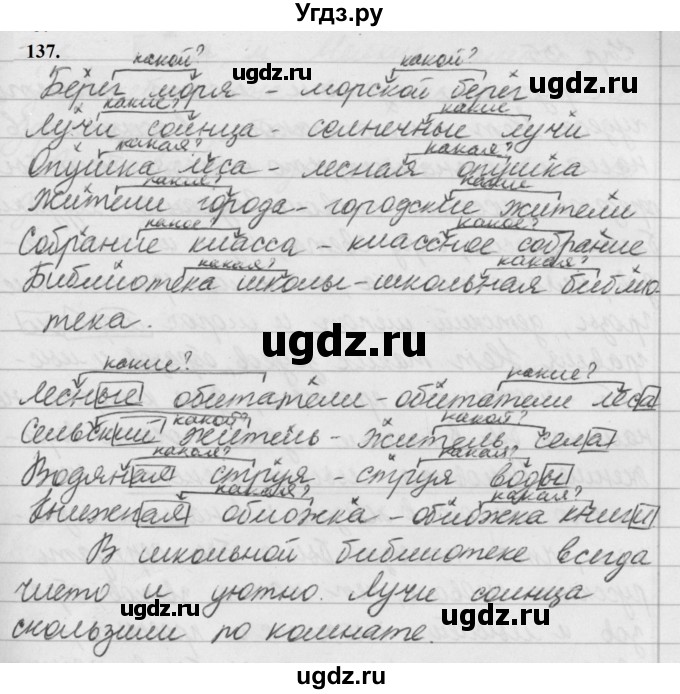 Угдз.ру
137.
какой? какой?
Берег моря - морской берег
какие? какие
Лучи солнца - солнечные лучи
какая? какая?
Опушка леса - лесная опушка
какие? какие
Жители города - городские жители
какое? какое?
Собрание класса - классное собрание
какая? какая?
Библиотека школы - школьная библио-
тека.
какие? какие?
Лесные обитатели - обитатели леса
какой? какой?
Сельский житель - житель села
какая? какая?
Водяная струя - струя воды
какая? какая?
Книжная обложка - обложка книги
В школьной библиотеке всегда
чисто и уютно. Лучи солнца
скользили по комнате.
ugdz.ru
ugdz.ru
ugdz.ru
ugdz.ru
ugdz.ru
ugdz.ru
ugdz.ru
Угдз.ру